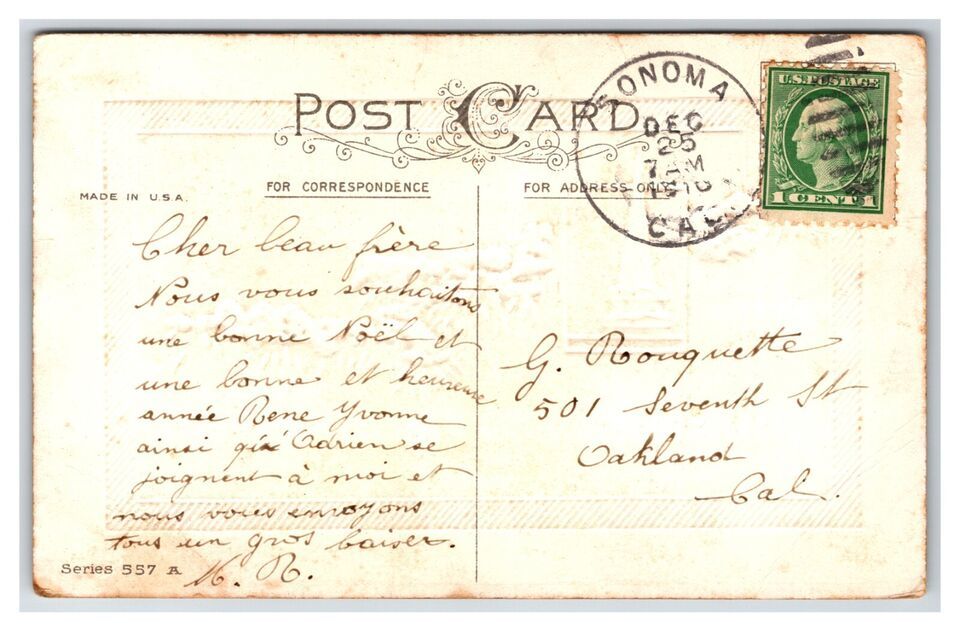 POST CARD
SONOMA
DEC
25
7 AM
CAL
U.S. POSTAGE
1 CENT 1
MADE IN U.S.A.
FOR CORRESPONDENCE
FOR ADDRESS ONLY
Cher beau frère
Nous vous souhaitons
une bonne Noël et
une bonne et heureuse
année Rene Yvonne
ainsi qu' Adrien se
joignent à moi et
nous vous envoyons
tous un gros baiser.
M. R.
G. Rouquette
501 Seventh St
Oakland
Cal.
Series 557 A